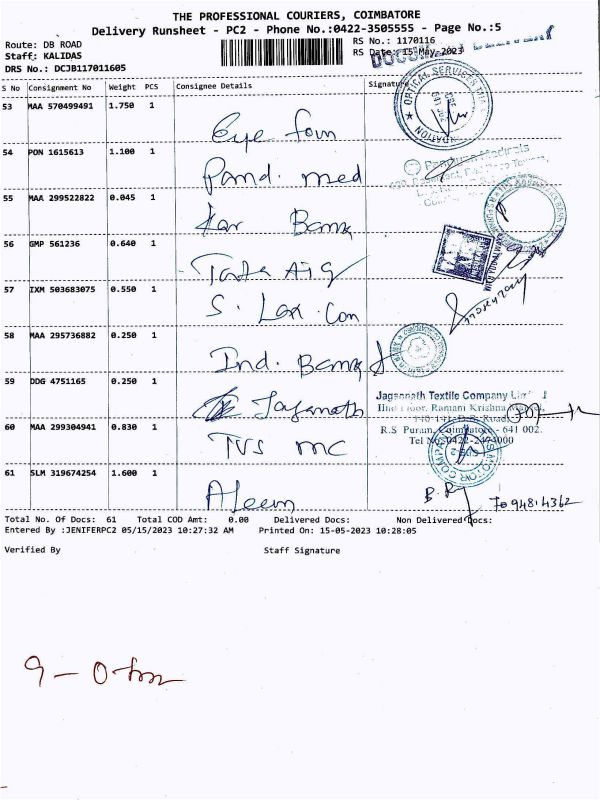 THE PROFESSIONAL COURIERS, COIMBATORE
Delivery Runsheet - PC2 - Phone No.:0422-3505555 - Page No.:5
Route: DB ROAD
RS No.: 1170116
Staff: KALIDAS
RS Date: 15-May-2023
DRS No.: DCJB117011605
S No Consignment No Weight PCS Consignee Details Signature
53 MAA 570499491 1.750 1
Eye foun
OPTICAL SERVICES
54 PON 1615613 1.100 1
Pand. med
55 MAA 299522822 0.045 1
Kar Bank
56 GMP 561236 0.640 1
Tata AIG
WITH YOU ALWAYS
57 IXM 503683075 0.550 1
S. Lax. Con
58 MAA 295736882 0.250 1
Ind. Bank
59 DDG 4751165 0.250 1
Jaganath
Jagannath Textile Company
IInd Floor, Ramani Krishna
R.S Puram, Coimbatore - 641 002.
60 MAA 299304941 0.830 1
TVS MC
Tel No:0422-2474000
61 SLM 319674254 1.600 1
Aleem
Total No. Of Docs: 61 Total COD Amt: 0.00 Delivered Docs: Non Delivered Docs:
Entered By :JENIFERPC2 05/15/2023 10:27:32 AM Printed On: 15-05-2023 10:28:05
Verified By Staff Signature